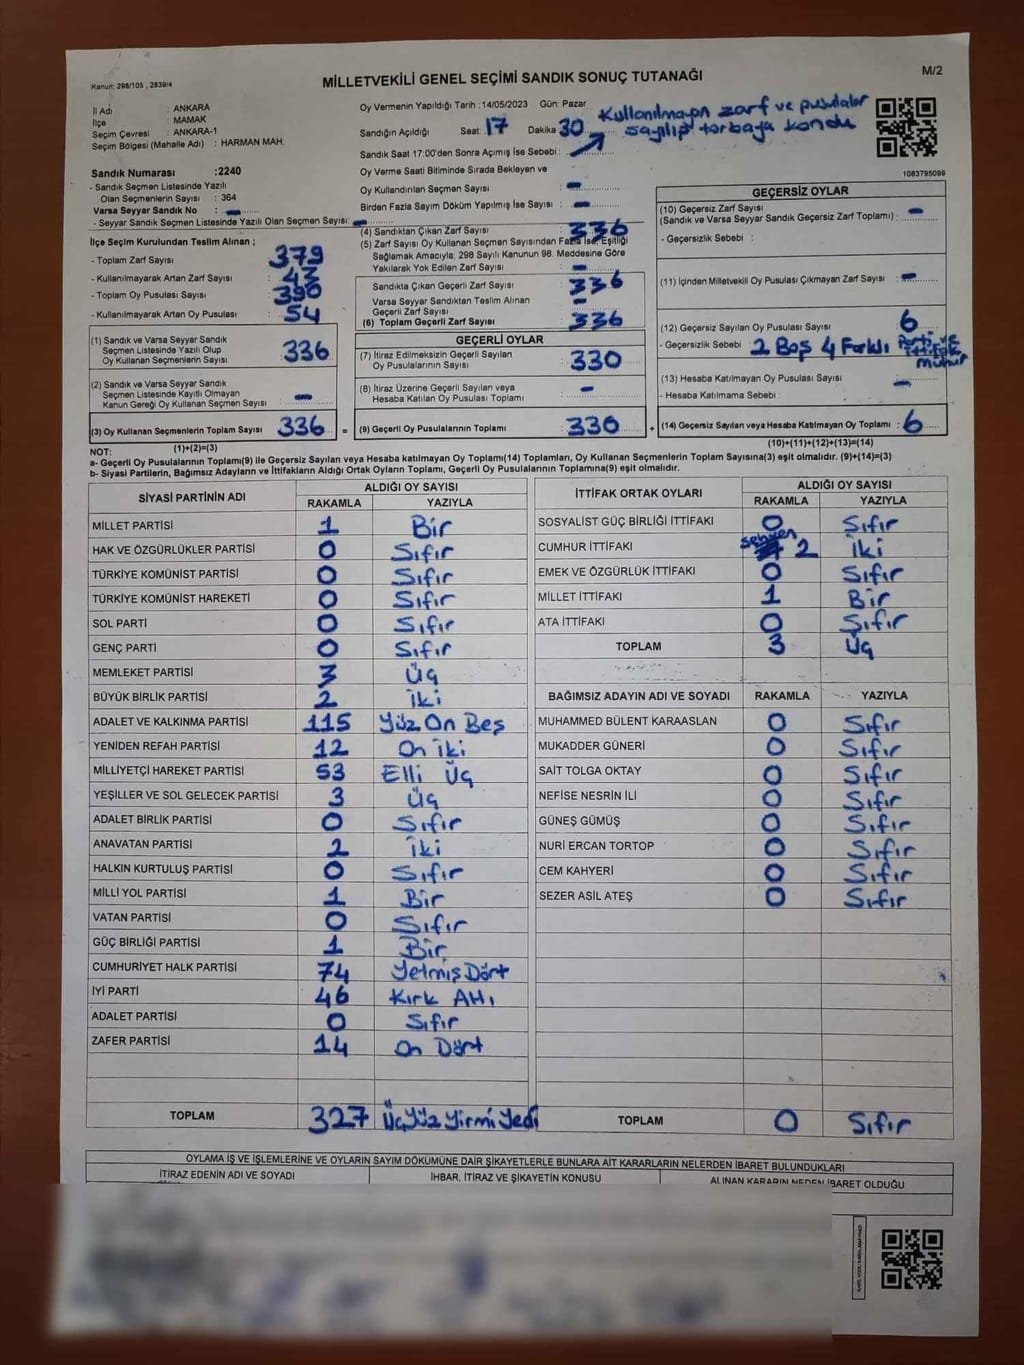 M/2
Kanun: 298/105 , 2839/4
MİLLETVEKİLİ GENEL SEÇİMİ SANDIK SONUÇ TUTANAĞI
İl Adı : ANKARA
İlçe : MAMAK
Seçim Çevresi : ANKARA-1
Seçim Bölgesi (Mahalle Adı) : HARMAN MAH.
Oy Vermenin Yapıldığı Tarih : 14/05/2023 Gün: Pazar
Kullanılmayan zarf ve pusulalar
sayılıp torbaya kondu
Sandığın Açıldığı Saat 17 Dakika 30
Sandık Saat 17:00'den Sonra Açımış İse Sebebi :
Oy Verme Saati Bitiminde Sırada Bekleyen ve
Oy Kullandırılan Seçmen Sayısı : -
Birden Fazla Sayım Döküm Yapılmış İse Sayısı : -
1083795099
Sandık Numarası :2240
- Sandık Seçmen Listesinde Yazılı
Olan Seçmenlerin Sayısı : 364
Varsa Seyyar Sandık No : -
- Seyyar Sandık Seçmen Listesinde Yazılı Olan Seçmen Sayısı: -
İlçe Seçim Kurulundan Teslim Alınan ;
- Toplam Zarf Sayısı : 379
- Kullanılmayarak Artan Zarf Sayısı : 43
- Toplam Oy Pusulası Sayısı : 390
- Kullanılmayarak Artan Oy Pusulası : 54
(1) Sandık ve Varsa Seyyar Sandık
Seçmen Listesinde Yazılı Olup
Oy Kullanan Seçmenlerin Sayısı : 336
(2) Sandık ve Varsa Seyyar Sandık
Seçmen Listesinde Kayıtlı Olmayan
Kanun Gereği Oy Kullanan Seçmen Sayısı : -
(3) Oy Kullanan Seçmenlerin Toplam Sayısı : 336 =
(1)+(2)=(3)
(4) Sandıktan Çıkan Zarf Sayısı : 336
(5) Zarf Sayısı Oy Kullanan Seçmen Sayısından Fazla İse, Eşitliği
Sağlamak Amacıyla, 298 Sayılı Kanunun 98. Maddesine Göre
Yakılarak Yok Edilen Zarf Sayısı : -
Sandıkta Çıkan Geçerli Zarf Sayısı : 336
Varsa Seyyar Sandıktan Teslim Alınan
Geçerli Zarf Sayısı : -
(6) Toplam Geçerli Zarf Sayısı : 336
GEÇERLİ OYLAR
(7) İtiraz Edilmeksizin Geçerli Sayılan
Oy Pusulalarının Sayısı : 330
(8) İtiraz Üzerine Geçerli Sayılan veya
Hesaba Katılan Oy Pusulası Toplamı : -
(9) Geçerli Oy Pusulalarının Toplamı : 330 +
GEÇERSİZ OYLAR
(10) Geçersiz Zarf Sayısı
(Sandık ve Varsa Seyyar Sandık Geçersiz Zarf Toplamı) : -
- Geçersizlik Sebebi :
(11) İçinden Milletvekili Oy Pusulası Çıkmayan Zarf Sayısı : -
(12) Geçersiz Sayılan Oy Pusulası Sayısı : 6
- Geçersizlik Sebebi : 2 Boş 4 Farklı Parti ve İttifak mühür
(13) Hesaba Katılmayan Oy Pusulası Sayısı : -
- Hesaba Katılmama Sebebi :
(14) Geçersiz Sayılan veya Hesaba Katılmayan Oy Toplamı : 6
(10)+(11)+(12)+(13)=(14)
NOT:
a- Geçerli Oy Pusulalarının Toplamı(9) ile Geçersiz Sayılan veya Hesaba Katılmayan Oy Toplamı(14) Toplamları, Oy Kullanan Seçmenlerin Toplam Sayısına(3) eşit olmalıdır. (9)+(14)=(3)
b- Siyasi Partilerin, Bağımsız Adayların ve İttifakların Aldığı Ortak Oyların Toplamı, Geçerli Oy Pusulalarının Toplamına(9) eşit olmalıdır.
SİYASİ PARTİNİN ADI ALDIĞI OY SAYISI
RAKAMLA YAZIYLA
MİLLET PARTİSİ 1 Bir
HAK VE ÖZGÜRLÜKLER PARTİSİ 0 Sıfır
TÜRKİYE KOMÜNİST PARTİSİ 0 Sıfır
TÜRKİYE KOMÜNİST HAREKETİ 0 Sıfır
SOL PARTİ 0 Sıfır
GENÇ PARTİ 0 Sıfır
MEMLEKET PARTİSİ 3 Üç
BÜYÜK BİRLİK PARTİSİ 2 İki
ADALET VE KALKINMA PARTİSİ 115 Yüz On Beş
YENİDEN REFAH PARTİSİ 12 On İki
MİLLİYETÇİ HAREKET PARTİSİ 53 Elli Üç
YEŞİLLER VE SOL GELECEK PARTİSİ 3 Üç
ADALET BİRLİK PARTİSİ 0 Sıfır
ANAVATAN PARTİSİ 2 İki
HALKIN KURTULUŞ PARTİSİ 0 Sıfır
MİLLİ YOL PARTİSİ 1 Bir
VATAN PARTİSİ 0 Sıfır
GÜÇ BİRLİĞİ PARTİSİ 1 Bir
CUMHURİYET HALK PARTİSİ 74 Yetmiş Dört
İYİ PARTİ 46 Kırk Altı
ADALET PARTİSİ 0 Sıfır
ZAFER PARTİSİ 14 On Dört
TOPLAM 327 Üç Yüz Yirmi Yedi
İTTİFAK ORTAK OYLARI ALDIĞI OY SAYISI
RAKAMLA YAZIYLA
SOSYALİST GÜÇ BİRLİĞİ İTTİFAKI 0 Sıfır
CUMHUR İTTİFAKI sehven 2 İki
EMEK VE ÖZGÜRLÜK İTTİFAKI 0 Sıfır
MİLLET İTTİFAKI 1 Bir
ATA İTTİFAKI 0 Sıfır
TOPLAM 3 Üç
BAĞIMSIZ ADAYIN ADI VE SOYADI RAKAMLA YAZIYLA
MUHAMMED BÜLENT KARAASLAN 0 Sıfır
MUKADDER GÜNERİ 0 Sıfır
SAİT TOLGA OKTAY 0 Sıfır
NEFİSE NESRİN İLİ 0 Sıfır
GÜNEŞ GÜMÜŞ 0 Sıfır
NURİ ERCAN TORTOP 0 Sıfır
CEM KAHYERİ 0 Sıfır
SEZER ASİL ATEŞ 0 Sıfır
TOPLAM 0 Sıfır
OYLAMA İŞ VE İŞLEMLERİNE VE OYLARIN SAYIM DÖKÜMÜNE DAİR ŞİKAYETLERLE BUNLARA AİT KARARLARIN NELERDEN İBARET BULUNDUKLARI
İTİRAZ EDENİN ADI VE SOYADI İHBAR, İTİRAZ VE ŞİKAYETİN KONUSU ALINAN KARARIN NEDEN İBARET OLDUĞU